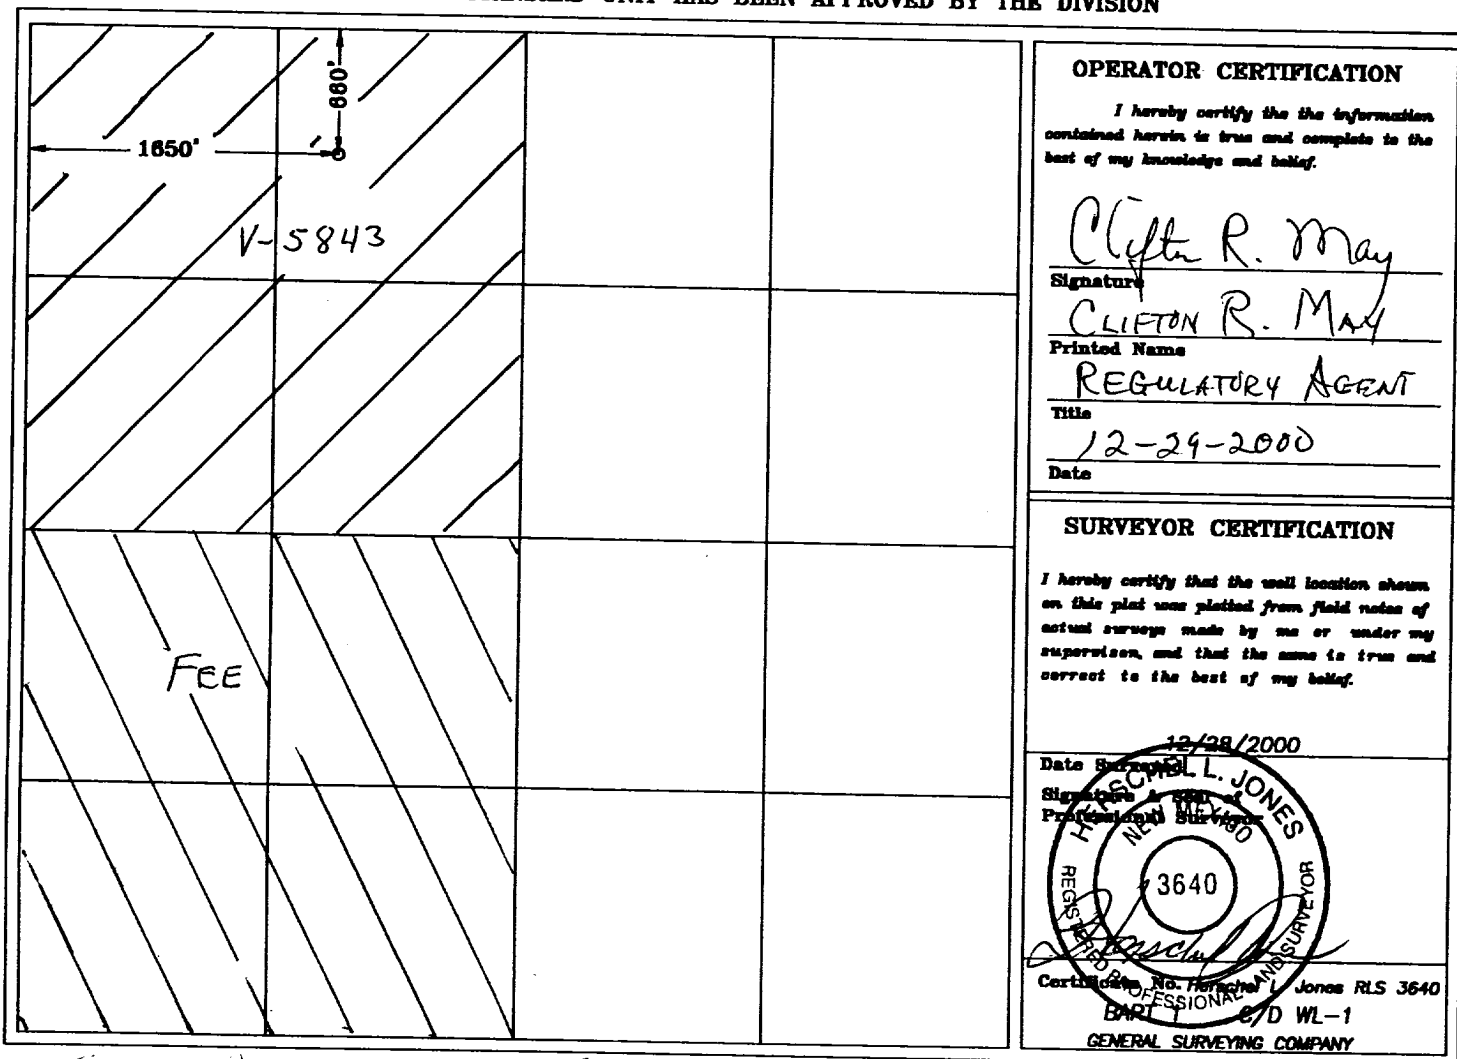 UNIT HAS BEEN APPROVED BY THE DIVISION
660'
1650'
V-5843
FEE
OPERATOR CERTIFICATION
I hereby certify the the information
contained herein is true and complete to the
best of my knowledge and belief.
Clifton R. May
Signature
CLIFTON R. MAY
Printed Name
REGULATORY AGENT
Title
12-29-2000
Date
SURVEYOR CERTIFICATION
I hereby certify that the well location shown
on this plat was plotted from field notes of
actual surveys made by me or under my
supervison, and that the same is true and
correct to the best of my belief.
12/28/2000
Date Surveyed
Signature & Seal of
Professional Surveyor
HERSCHEL L. JONES
NEW MEXICO
3640
REGISTERED PROFESSIONAL LAND SURVEYOR
Certificate No. Herschel L. Jones RLS 3640
BART 1 C/D WL-1
GENERAL SURVEYING COMPANY